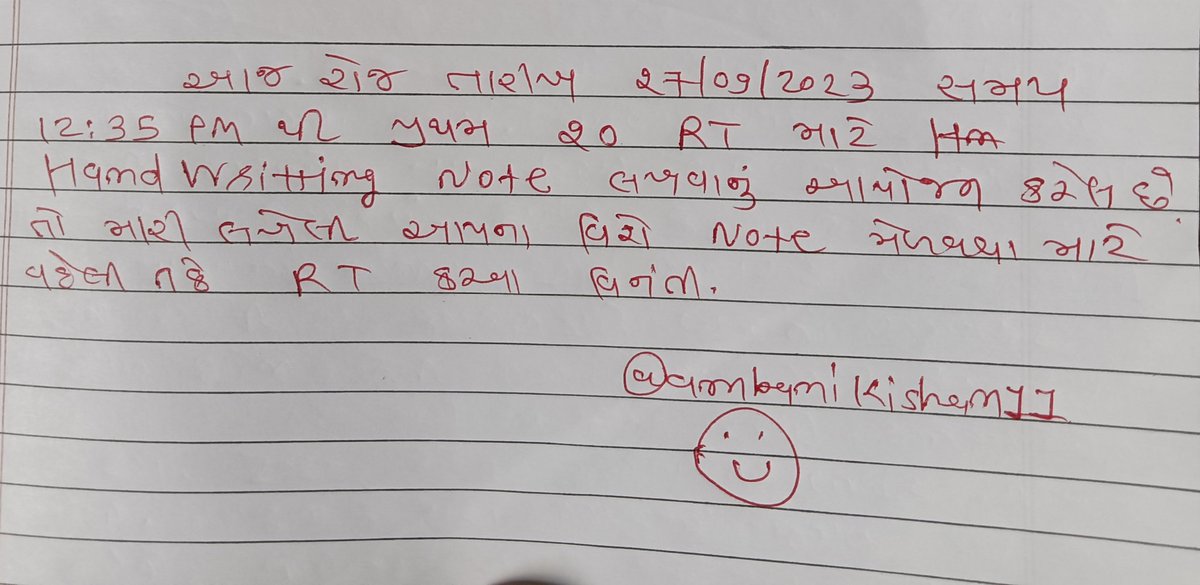 આજ રોજ તારીખ ૨7/09/2023 સમય
12:35 PM થી પ્રથમ ૨૦ RT માટે
Hand Writting Note લખવાનું આયોજન કરેલ છે.
તો મારી લખેલી આપના વિશે Note મેળવવા માટે
વહેલી તકે RT કરવા વિનંતી.